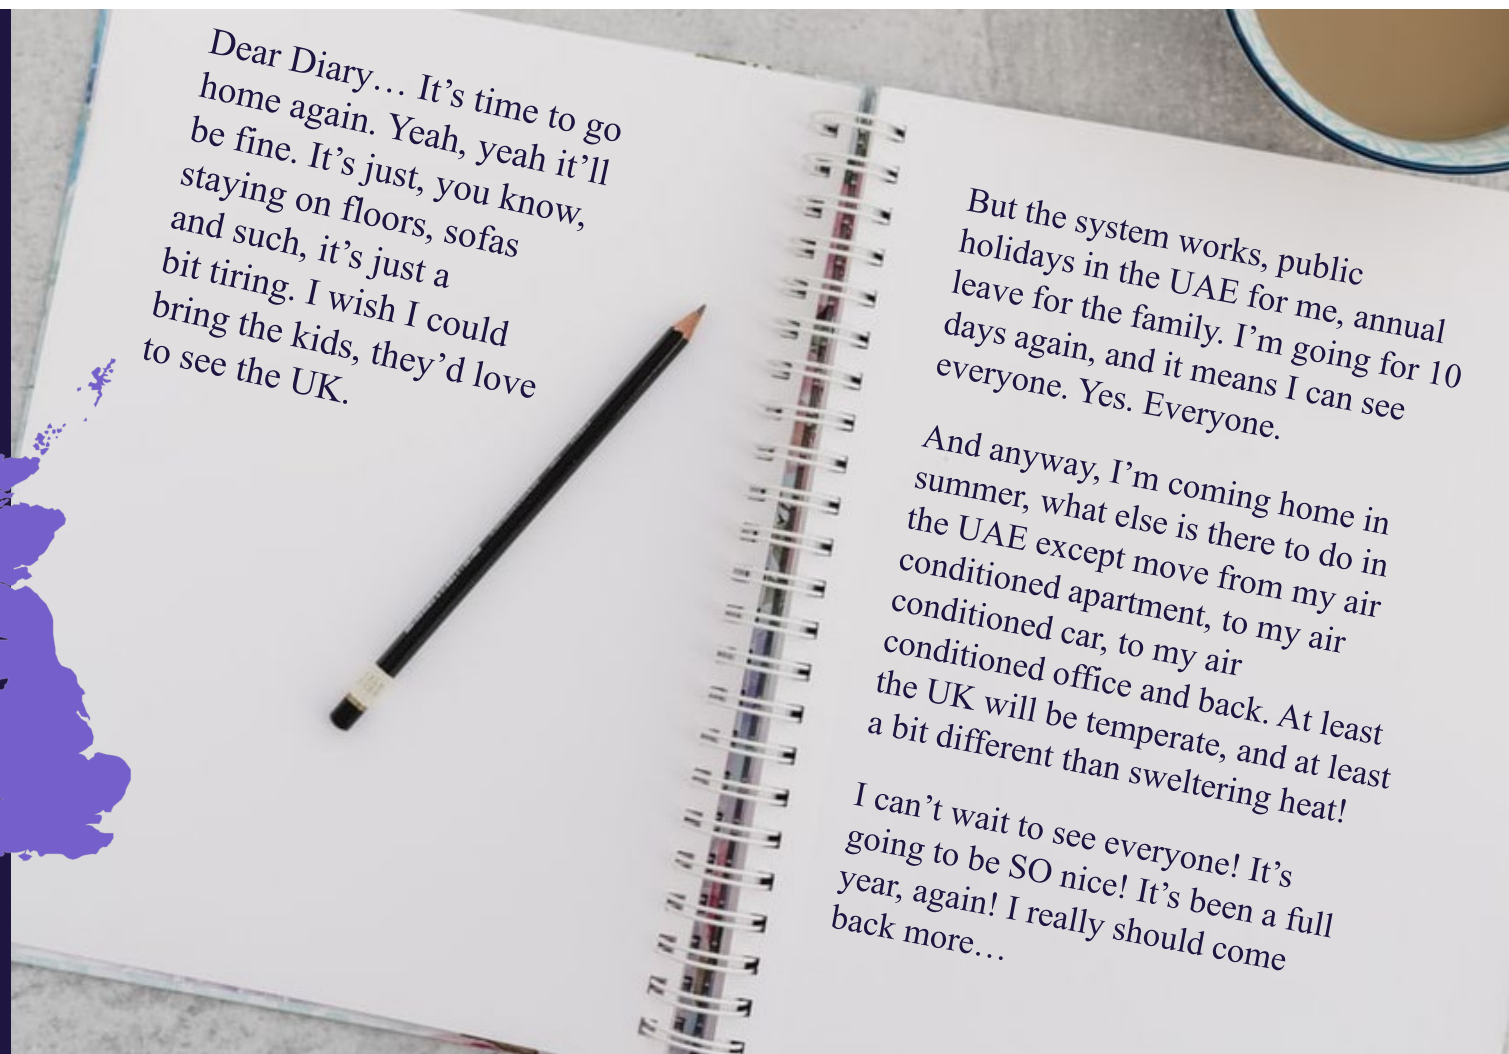 Dear Diary… It’s time to go
home again. Yeah, yeah it’ll
be fine. It’s just, you know,
staying on floors, sofas
and such, it’s just a
bit tiring. I wish I could
bring the kids, they’d love
to see the UK.
But the system works, public
holidays in the UAE for me, annual
leave for the family. I’m going for 10
days again, and it means I can see
everyone. Yes. Everyone.
And anyway, I’m coming home in
summer, what else is there to do in
the UAE except move from my air
conditioned apartment, to my air
conditioned car, to my air
conditioned office and back. At least
the UK will be temperate, and at least
a bit different than sweltering heat!
I can’t wait to see everyone! It’s
going to be SO nice! It’s been a full
year, again! I really should come
back more…